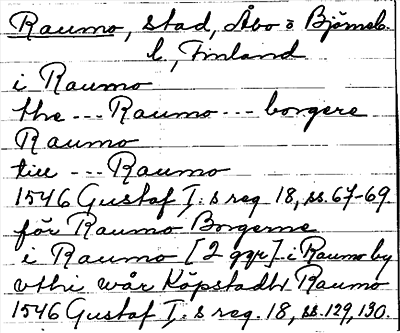 Raumo, stad, Åbo o Björneb.
l, Finland
i Raumo
the --- Raumo --- borgere
Raumo
till --- Raumo
1546 Gustaf I:s reg. 18, ss. 67-69
för Raumo Borgerne
i Raumo [2 ggr]. i Raumo by
vthi wår Köpstadt Raumo
1546 Gustaf I:s reg. 18, ss. 129, 130.